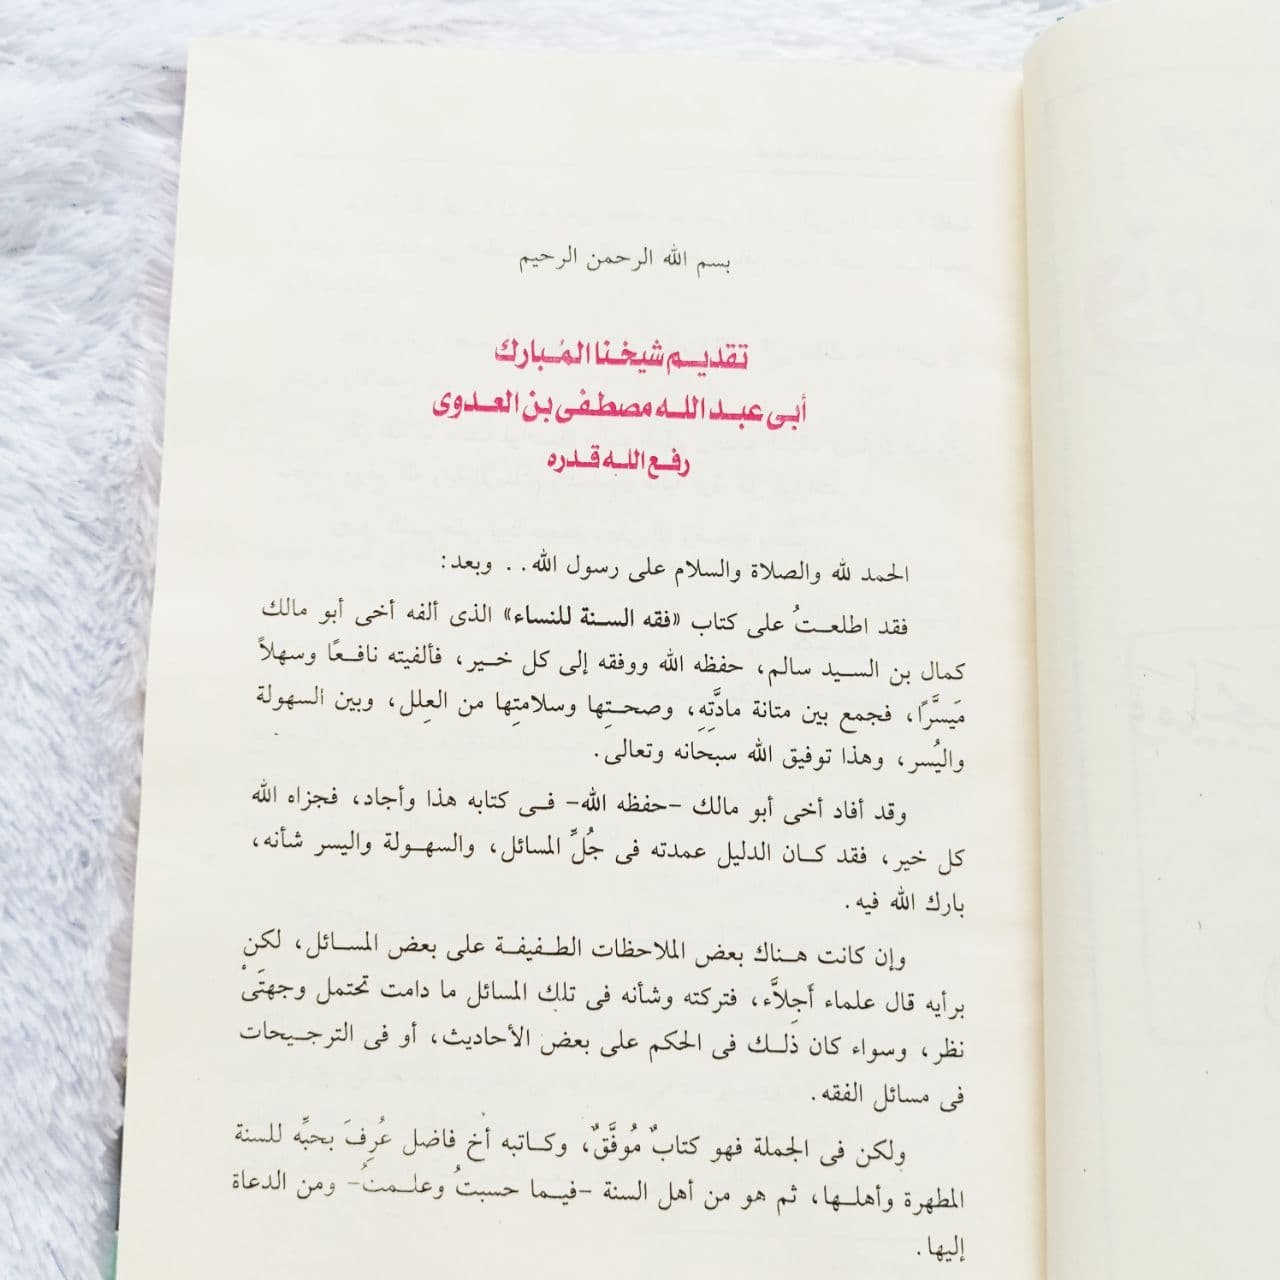 بسم الله الرحمن الرحيم
تقديم شيخنا المُبارك
أبى عبد الله مصطفى بن العدوى
رفع الله قدره
الحمد لله والصلاة والسلام على رسول الله . . وبعد :
فقد اطلعتُ على كتاب «فقه السنة للنساء» الذى ألفه أخى أبو مالك
كمال بن السيد سالم، حفظه الله ووفقه إلى كل خير، فألفيته نافعًا وسهلاً
مَيسَّرًا، فجمع بين متانة مادَّتِهِ، وصحتِها وسلامتِها من العِلل، وبين السهولة
واليُسر، وهذا توفيق الله سبحانه وتعالى.
وقد أفاد أخى أبو مالك -حفظه الله- فى كتابه هذا وأجاد، فجزاه الله
كل خير، فقد كان الدليل عمدته فى جُلِّ المسائل، والسهولة واليسر شأنه،
بارك الله فيه.
وإن كانت هناك بعض الملاحظات الطفيفة على بعض المسائل، لكن
برأيه قال علماء أَجِلاَّء، فتركته وشأنه فى تلك المسائل ما دامت تحتمل وجهتَىْ
نظر، وسواء كان ذلك فى الحكم على بعض الأحاديث، أو فى الترجيحات
فى مسائل الفقه.
ولكن فى الجملة فهو كتابٌ مُوفَّقٌ، وكاتبه أخ فاضل عُرِفَ بحبِّه للسنة
المطهرة وأهلها، ثم هو من أهل السنة -فيما حسبتُ وعلمتُ- ومن الدعاة
إليها.